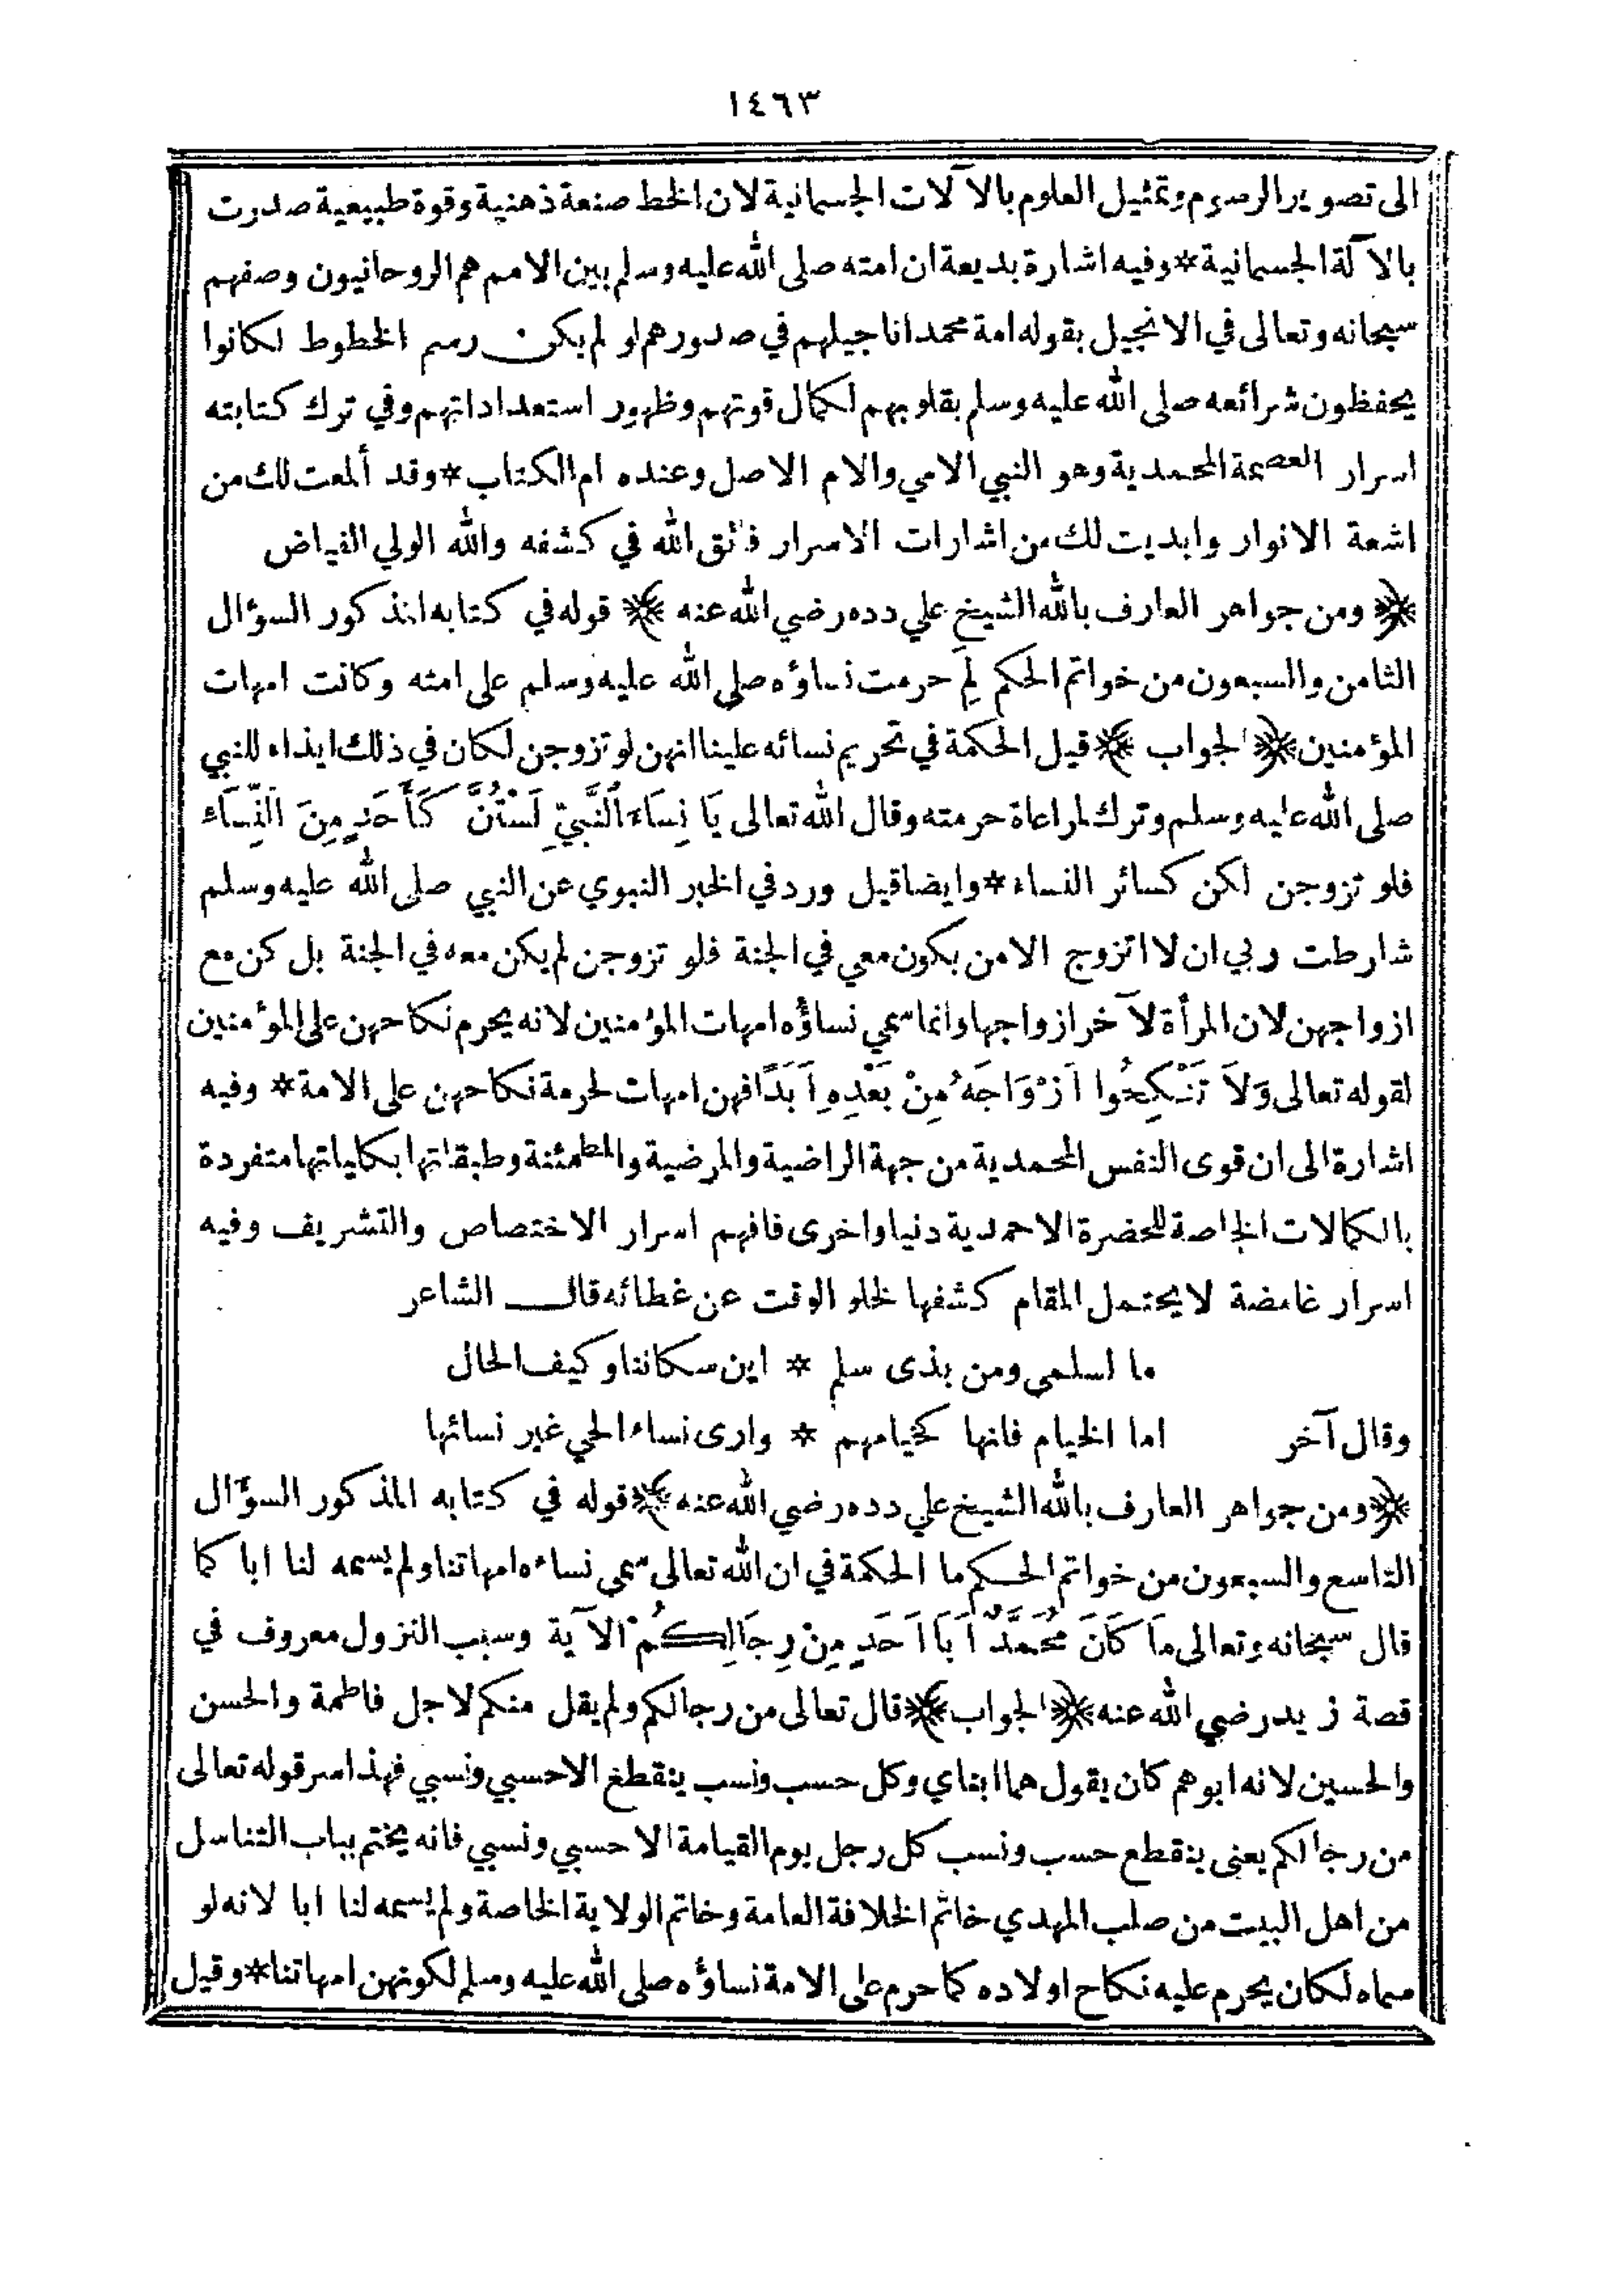 ١٤٦٣
الى تصوير الرسوم وتمثيل العلوم بالآلات الجسمانية لان الخط صنعة ذهنية وقوة طبيعية صدرت
بالآلة الجسمانية * وفيه اشارة بديعة ان امته صلى الله عليه وسلم بين الامم هم الروحانيون وصفهم
سبحانه وتعالى في الانجيل بقوله امة محمد اناجيلهم في صدورهم لو لم يكن رسم الخطوط لكانوا
يحفظون شرائعه صلى الله عليه وسلم بقلوبهم لكمال قوتهم وظهور استعداداتهم وفي ترك كتابته
اسرار العصمة المحمدية وهو النبي الامي والام الاصل وعنده ام الكتاب * وقد ألمعت لك من
اشعة الانوار وابديت لك من اشارات الاسرار فائق الله في كشفه والله الولي الفياض
﴿ ومن جواهر العارف بالله الشيخ علي دده رضي الله عنه ﴾ قوله في كتابه المذكور السؤال
الثامن والسبعون من خواتم الحكم لِمَ حرمت نساؤه صلى الله عليه وسلم على امته وكانت امهات
المؤمنين ﴿ الجواب ﴾ قيل الحكمة في تحريم نسائه علينا انهن لو تزوجن لكان في ذلك ايذاء للنبي
صلى الله عليه وسلم وترك لمراعاة حرمته وقال الله تعالى يَا نِسَاءَ ٱلنَّبِيِّ لَسْتُنَّ كَأَحَدٍ مِنَ ٱلنِّسَاءِ
فلو تزوجن لكن كسائر النساء * وايضا قيل ورد في الخبر النبوي عن النبي صلى الله عليه وسلم
شارطت ربي ان لا اتزوج الا من يكون معي في الجنة فلو تزوجن لم يكن معه في الجنة بل كن مع
ازواجهن لان المرأة لآخر ازواجها وانما سمي نساؤه امهات المؤمنين لانه يحرم نكاحهن على المؤمنين
لقوله تعالى وَلاَ تَنْكِحُوا أَزْوَاجَهُ مِنْ بَعْدِهِ أَبَدًا فهن امهات لحرمة نكاحهن على الامة * وفيه
اشارة الى ان قوى النفس المحمدية من جهة الراضية والمرضية والمطمئنة وطبقاتها بكلياتها متفردة
بالكمالات الخاصة للحضرة الاحمدية دنيا واخرى فافهم اسرار الاختصاص والتشريف وفيه
اسرار غامضة لا يحتمل المقام كشفها لخلو الوقت عن غطائه قال الشاعر
ما اسلمى ومن بذى سلم * اين سكاننا وكيف الحال
وقال آخر اما الخيام فانها كخيامهم * وارى نساء الحي غير نسائها
﴿ ومن جواهر العارف بالله الشيخ علي دده رضي الله عنه ﴾ قوله في كتابه المذكور السؤال
التاسع والسبعون من خواتم الحكم ما الحكمة في ان الله تعالى سمى نساءه امهاتنا ولم يسمه لنا ابا كما
قال سبحانه وتعالى مَا كَانَ مُحَمَّدٌ أَبَا أَحَدٍ مِنْ رِجَالِكُمْ الآية وسبب النزول معروف في
قصة زيد رضي الله عنه ﴿ الجواب ﴾ قال تعالى من رجالكم ولم يقل منكم لاجل فاطمة والحسن
والحسين لانه ابوهم كان يقول هما ابناي وكل حسب ونسب ينقطع الا حسبي ونسبي فهذا سر قوله تعالى
من رجالكم يعني ينقطع حسب ونسب كل رجل يوم القيامة الا حسبي ونسبي فانه يختم بباب التناسل
من اهل البيت من صلب المهدي خاتم الخلافة العامة وخاتم الولاية الخاصة ولم يسمه لنا ابا لانه لو
سماه لكان يحرم عليه نكاح اولاده كما حرم على الامة نساؤه صلى الله عليه وسلم لكونهن امهاتنا * وقيل